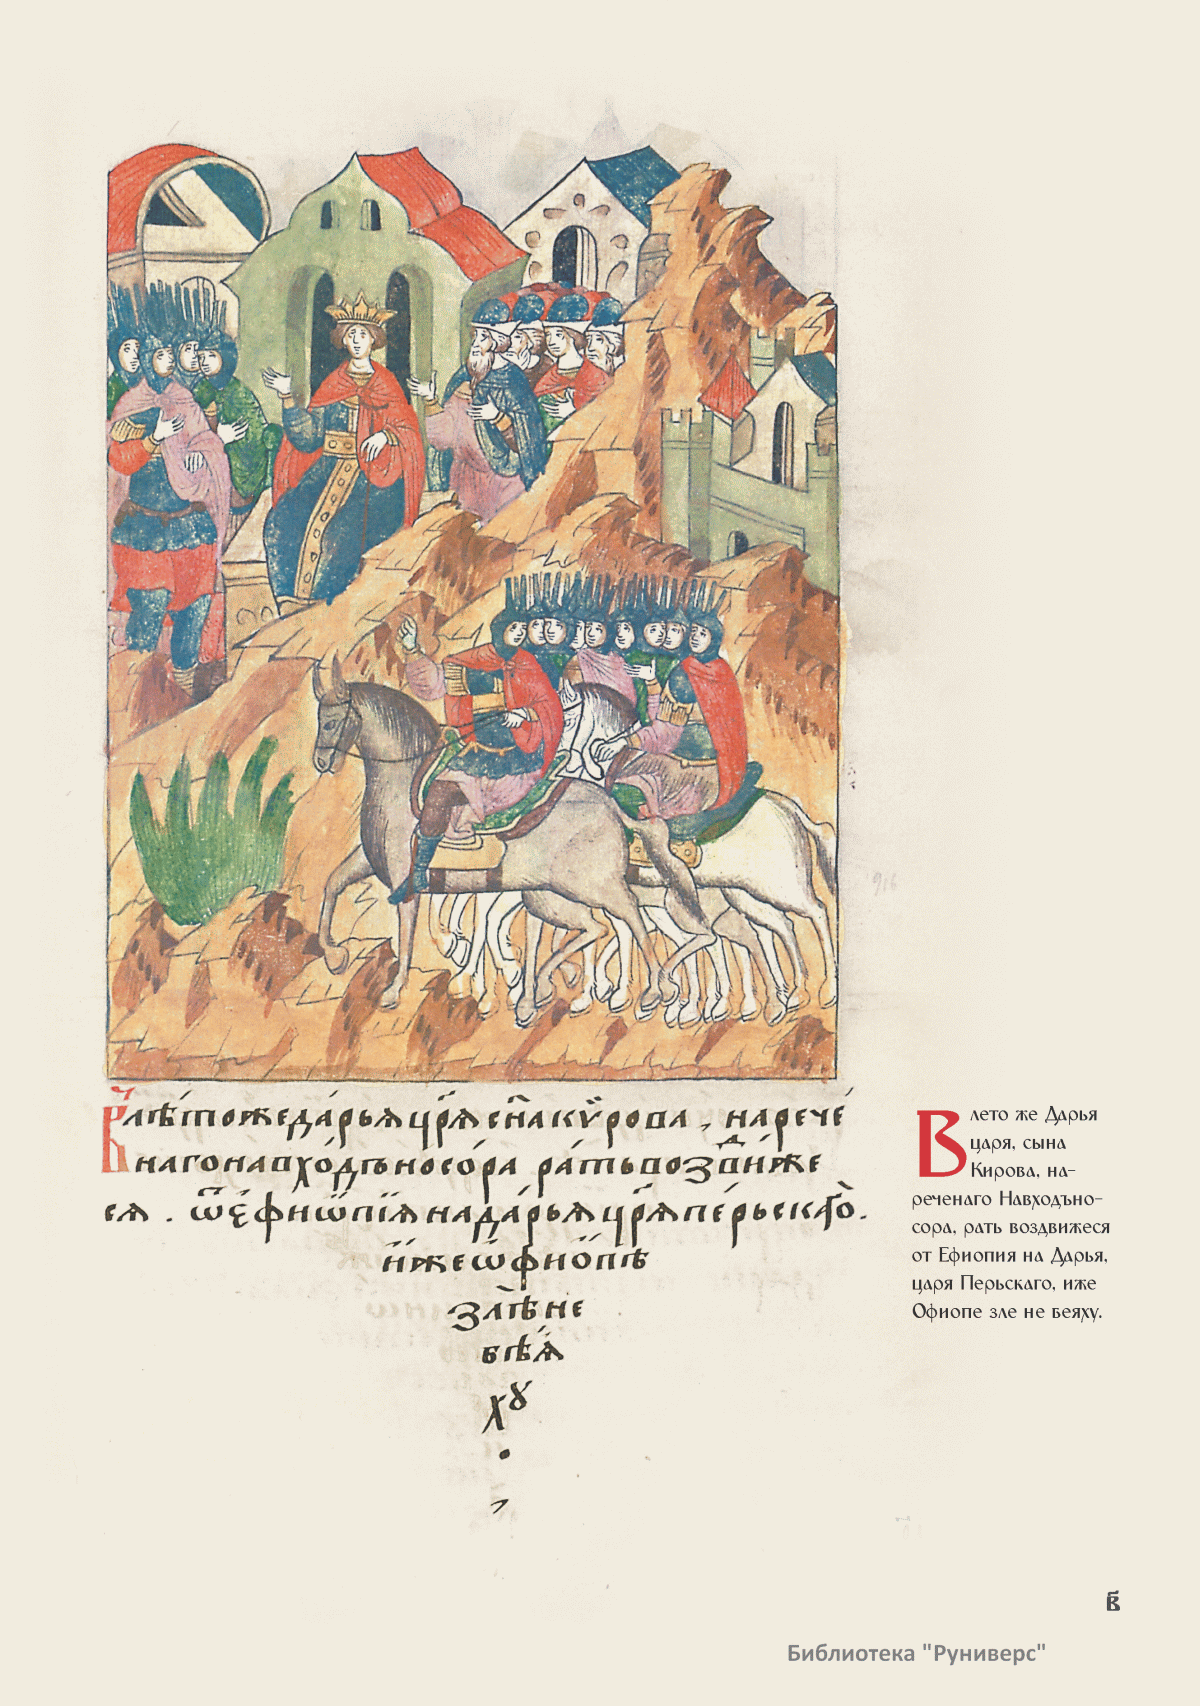 В лѣтоже дарьѧ црѧ сна кѵрова , нарече
наго навходъносора рать воздвиже
сѧ . ѿ еѳиѡпїѧ на дарьѧ црѧ перьскаго .
иже ѡѳиопѣ
злѣ не
вѣѧ
хꙋ
В лето же Дарья
царя, сына
Кирова, на-
реченаго Навходъно-
сора, рать воздвижеся
от Ефиопия на Дарья,
царя Перьскаго, иже
Офиопе зле не веяху.
Библиотека "Руниверс"